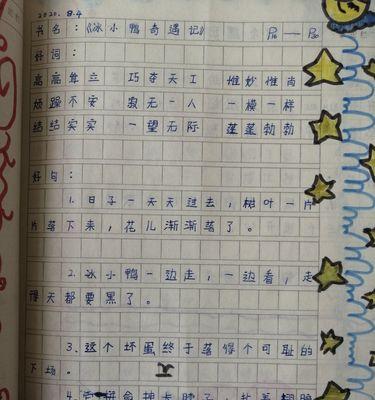 2020. 8.4
书名：《冰小鸭奇遇记》 P₁₆—P₈₀
好词：
高高耸立 巧夺天工 惟妙惟肖
烦躁不安 寂无一人 一模一样
结结实实 一望无际 蓬蓬勃勃
好句：
1.日子一天天过去，树叶一片
片落下来，花儿渐渐落了。
2.冰小鸭一边走，一边看，走
得天都要黑了。
3.这个坏蛋终于落得个可耻的
下场。
4.拼命掉长脖子